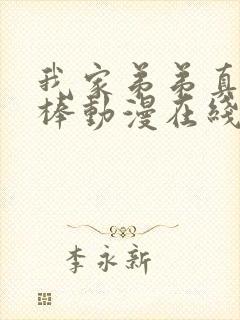 我家弟弟真
棒動漫在綫
李永新